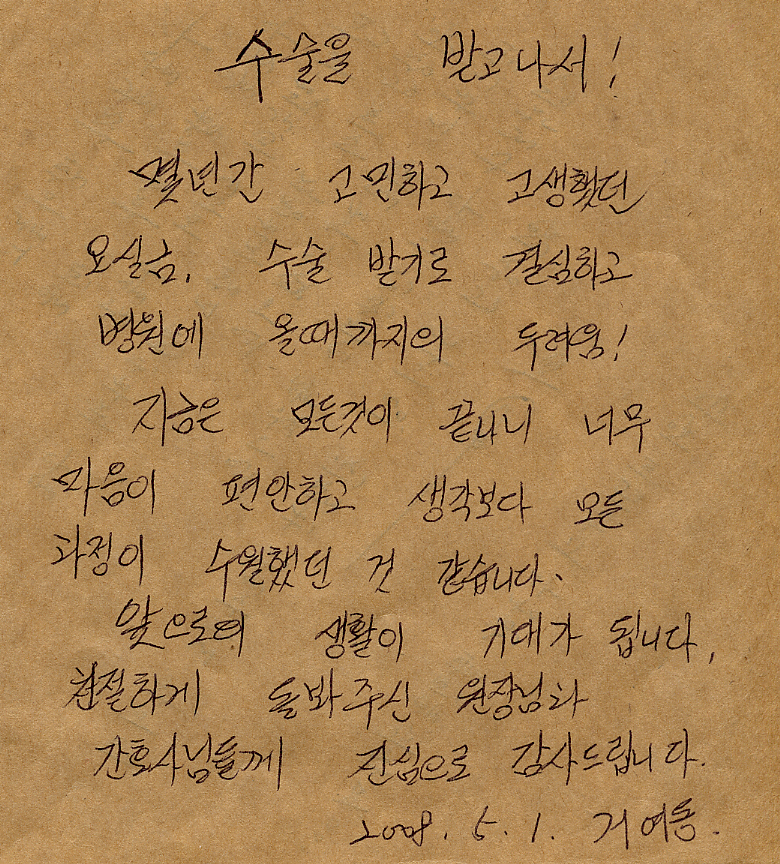 수술을 받고나서!
몇년간 고민하고 고생했던
요실금, 수술 받기로 결심하고
병원에 올때까지의 두려움!
지금은 모든것이 끝나니 너무
마음이 편안하고 생각보다 모든
과정이 수월했던 것 같습니다.
앞으로의 생활이 기대가 됩니다,
친절하게 돌봐주신 원장님과
간호사님들께 진심으로 감사드립니다.
2008. 5. 1.